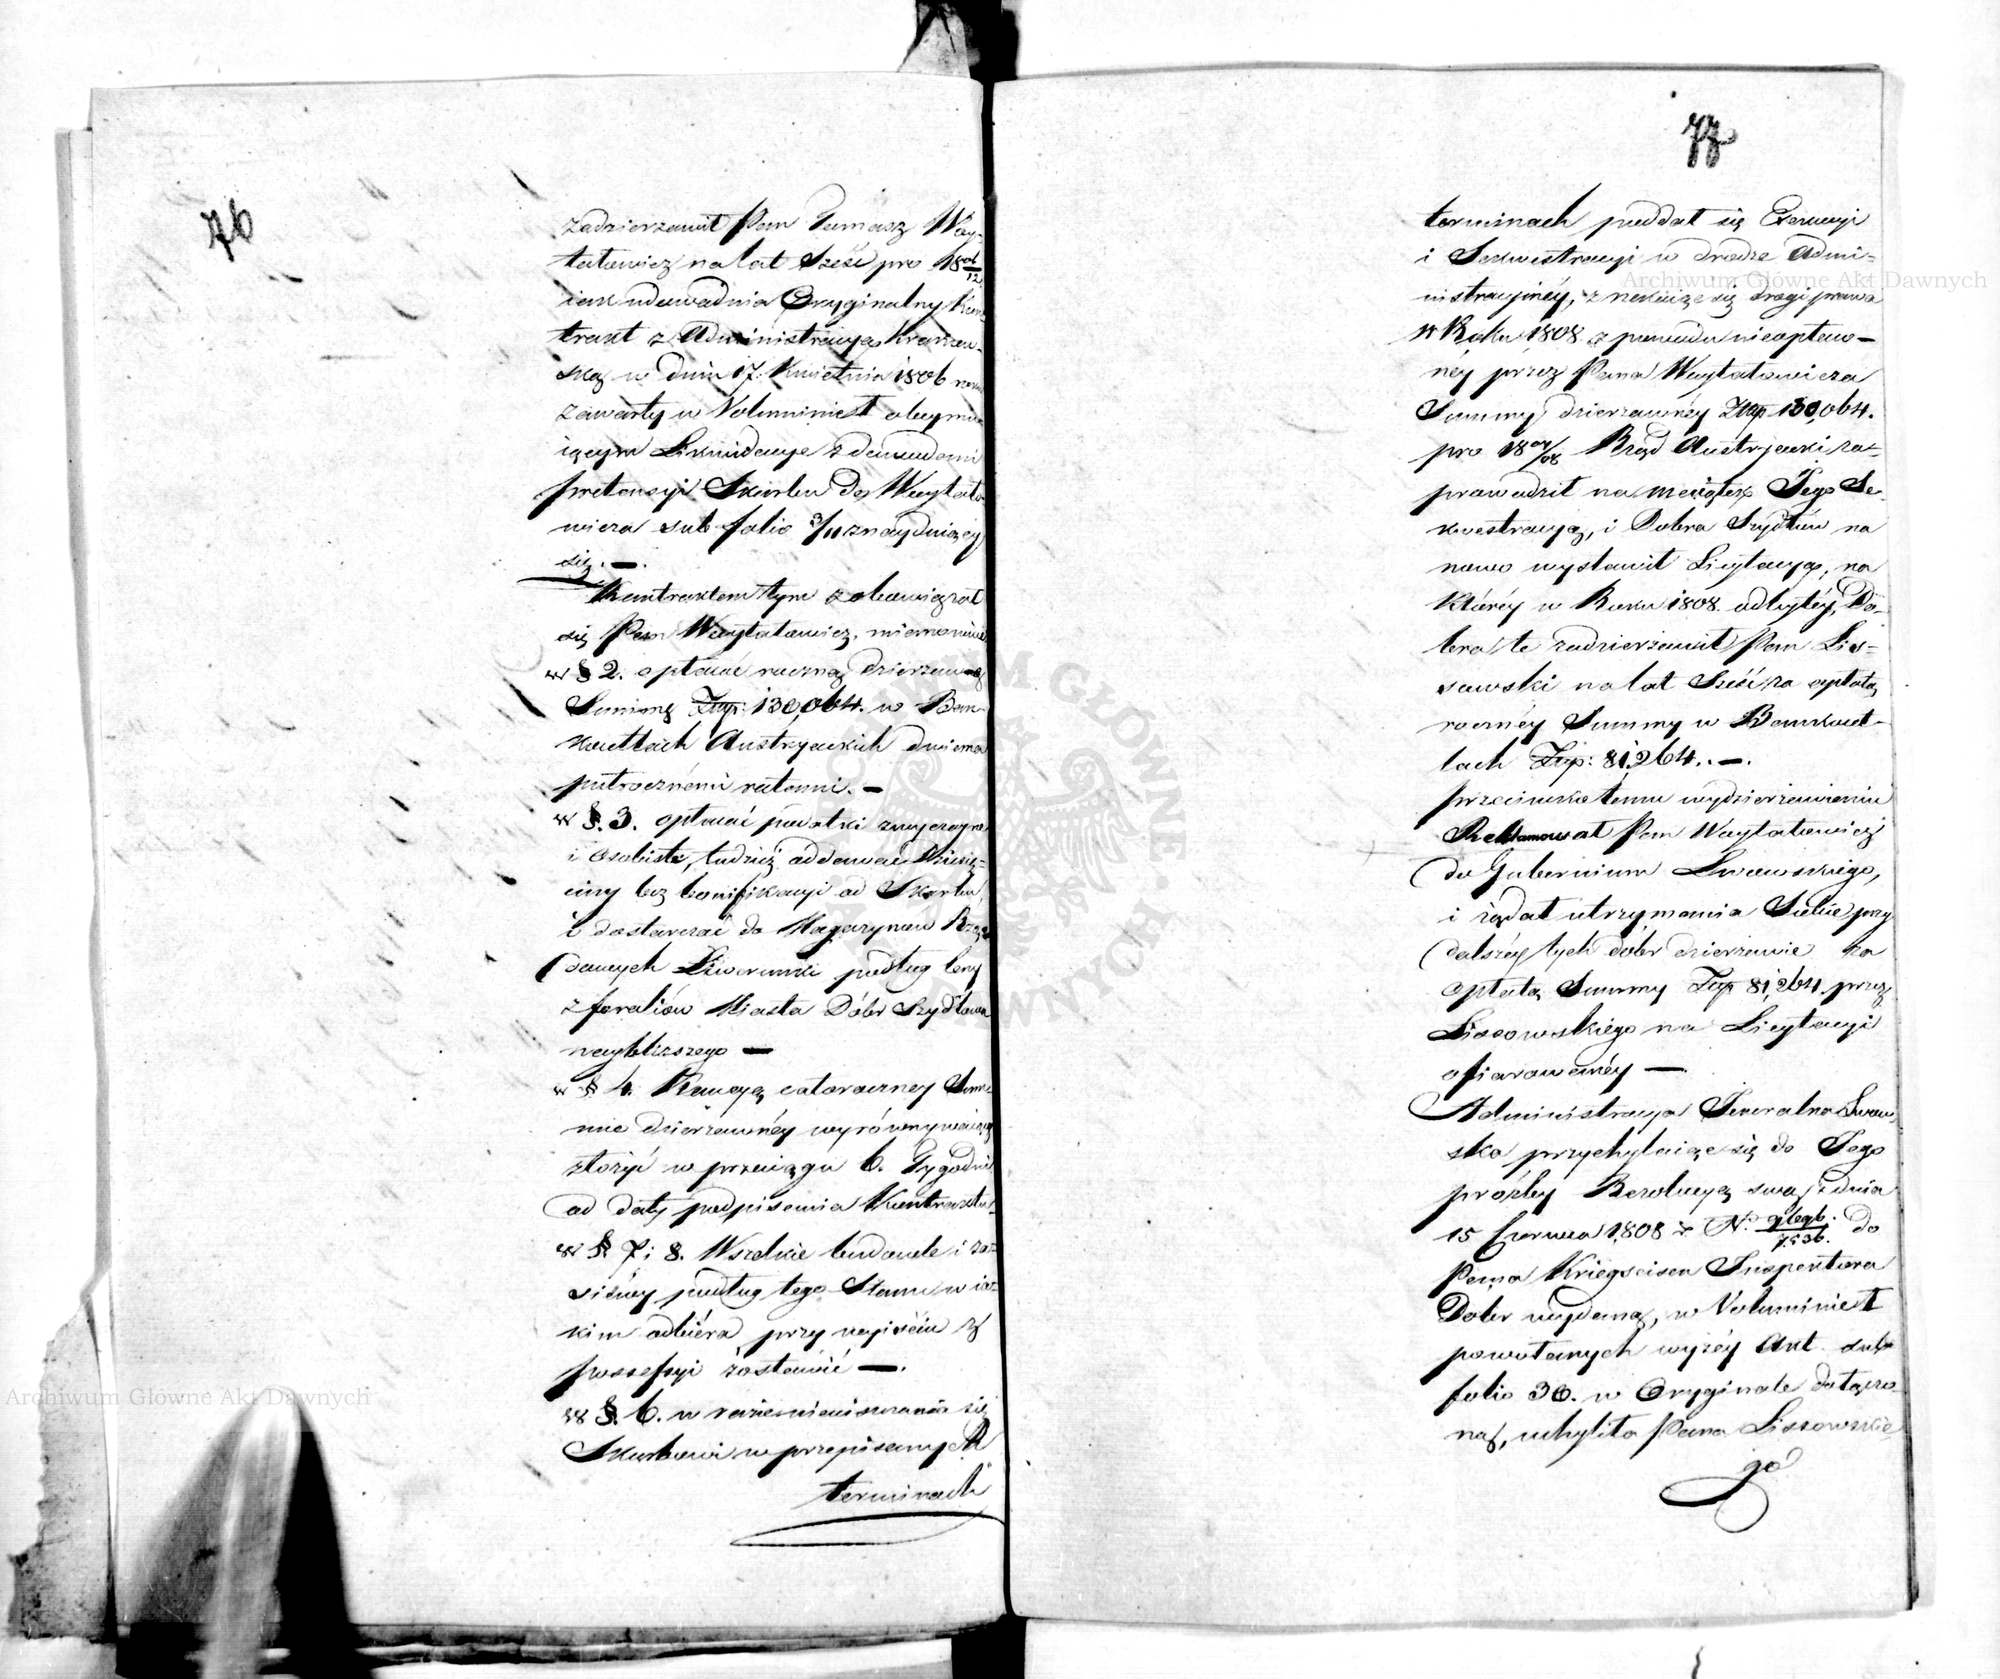 76
zadzierzawił Pan Tomasz Way-
tatowicz na lat Sześć pro 18 06/12
iak udowadnia Oryginalny Kon-
trakt z Administracyą Krakow-
ską w dniu 17. Kwietnia 1806 roku
zawarty w Voluminiest obeymu-
iącym Likwidacye z dowodami
pretensyi Skarbu do Waytato-
wicza sub folio 3/11 znayduiący
się. —
Kontraktem tym zobowiązał
się Pan Waytatowicz, mianowicie
w § 2. opłacać roczną dzierzawną
Summę Złłp: 130,064. w Ban-
kocetlach Austryackich dwiema
pułrocznemi ratami. —
w §. 3. opłacać podatki zwyczayne
i osobiste, tudzież oddawać Dziesię-
ciny bez bonifikacyi od Skarbu,
i dostarczać do Magazynów Rzą-
dowych Liwerunki podług Ceny
z foraliów Miasta Dóbr Szydłowa
naybliższego —
w § 4. Kaucyą całoroczney Sum-
mie dzierzawnéy wyrównywaiącą
złożyć w przeciągu 6. Tygodni
od daty podpisania Kontraktu.
w § 7 i 8. Wszelkie budowle i za-
siewy podług tego Stanu w ia-
kim odbiera przy wyiściu z
possessyi zostawić —.
w §. 6. w razie nieiszczania się
Skarbowi w przepisanych
terminach
77
terminach poddał się Exekucyi
i Sekwestracyi w drodze Admi-
nistracyinéy, zrzekaiąc się drogi prawa
W Roku 1808. z powodu nieopłaco-
néy przez Pana Waytatowicza
Summy dzierzawnéy Złłp 130,064.
pro 18 07/08 Rząd Austryacki za-
prowadził na maiątek Jego Se-
kwestracyą, i Dobra Szydłów na
nowo wystawił Licytacyą, na
któréy w Roku 1808. odbytéy, Do-
bra te zadzierzawił Pan Lis-
sowski na lat Sześć za opłatą
rocznéy Summy w Bankocet-
lach Złłp: 81,264. —.
przeciwko temu wydzierzawieniu
Reklamował Pan Waytatowicz
do Gubernium Lwowskiego,
i żądał utrzymania Siebie przy
dalszéy tych dóbr dzierzawie za
opłatą Summy Złłp 81,264. przez
Lissowskiego na Licytacyi
ofiarowanéy —
Administracya Generalna Lwow-
ska przychylaiąc się do Jego
proźby Rezolucyą swą z dnia
15 Czerwca 1808 r N. do
Pana Kriegseisen Inspektora
Dóbr wydaną, w Voluminiest
powołanych wyżéy Akt sub
folio 36. w Oryginale dołączo-
ną, uchyliła Pana Lissowskie-
go
Archiwum Główne Akt Dawnych
Archiwum Główne Akt Dawnych
ARCHIWUM GŁÓWNE AKT DAWNYCH